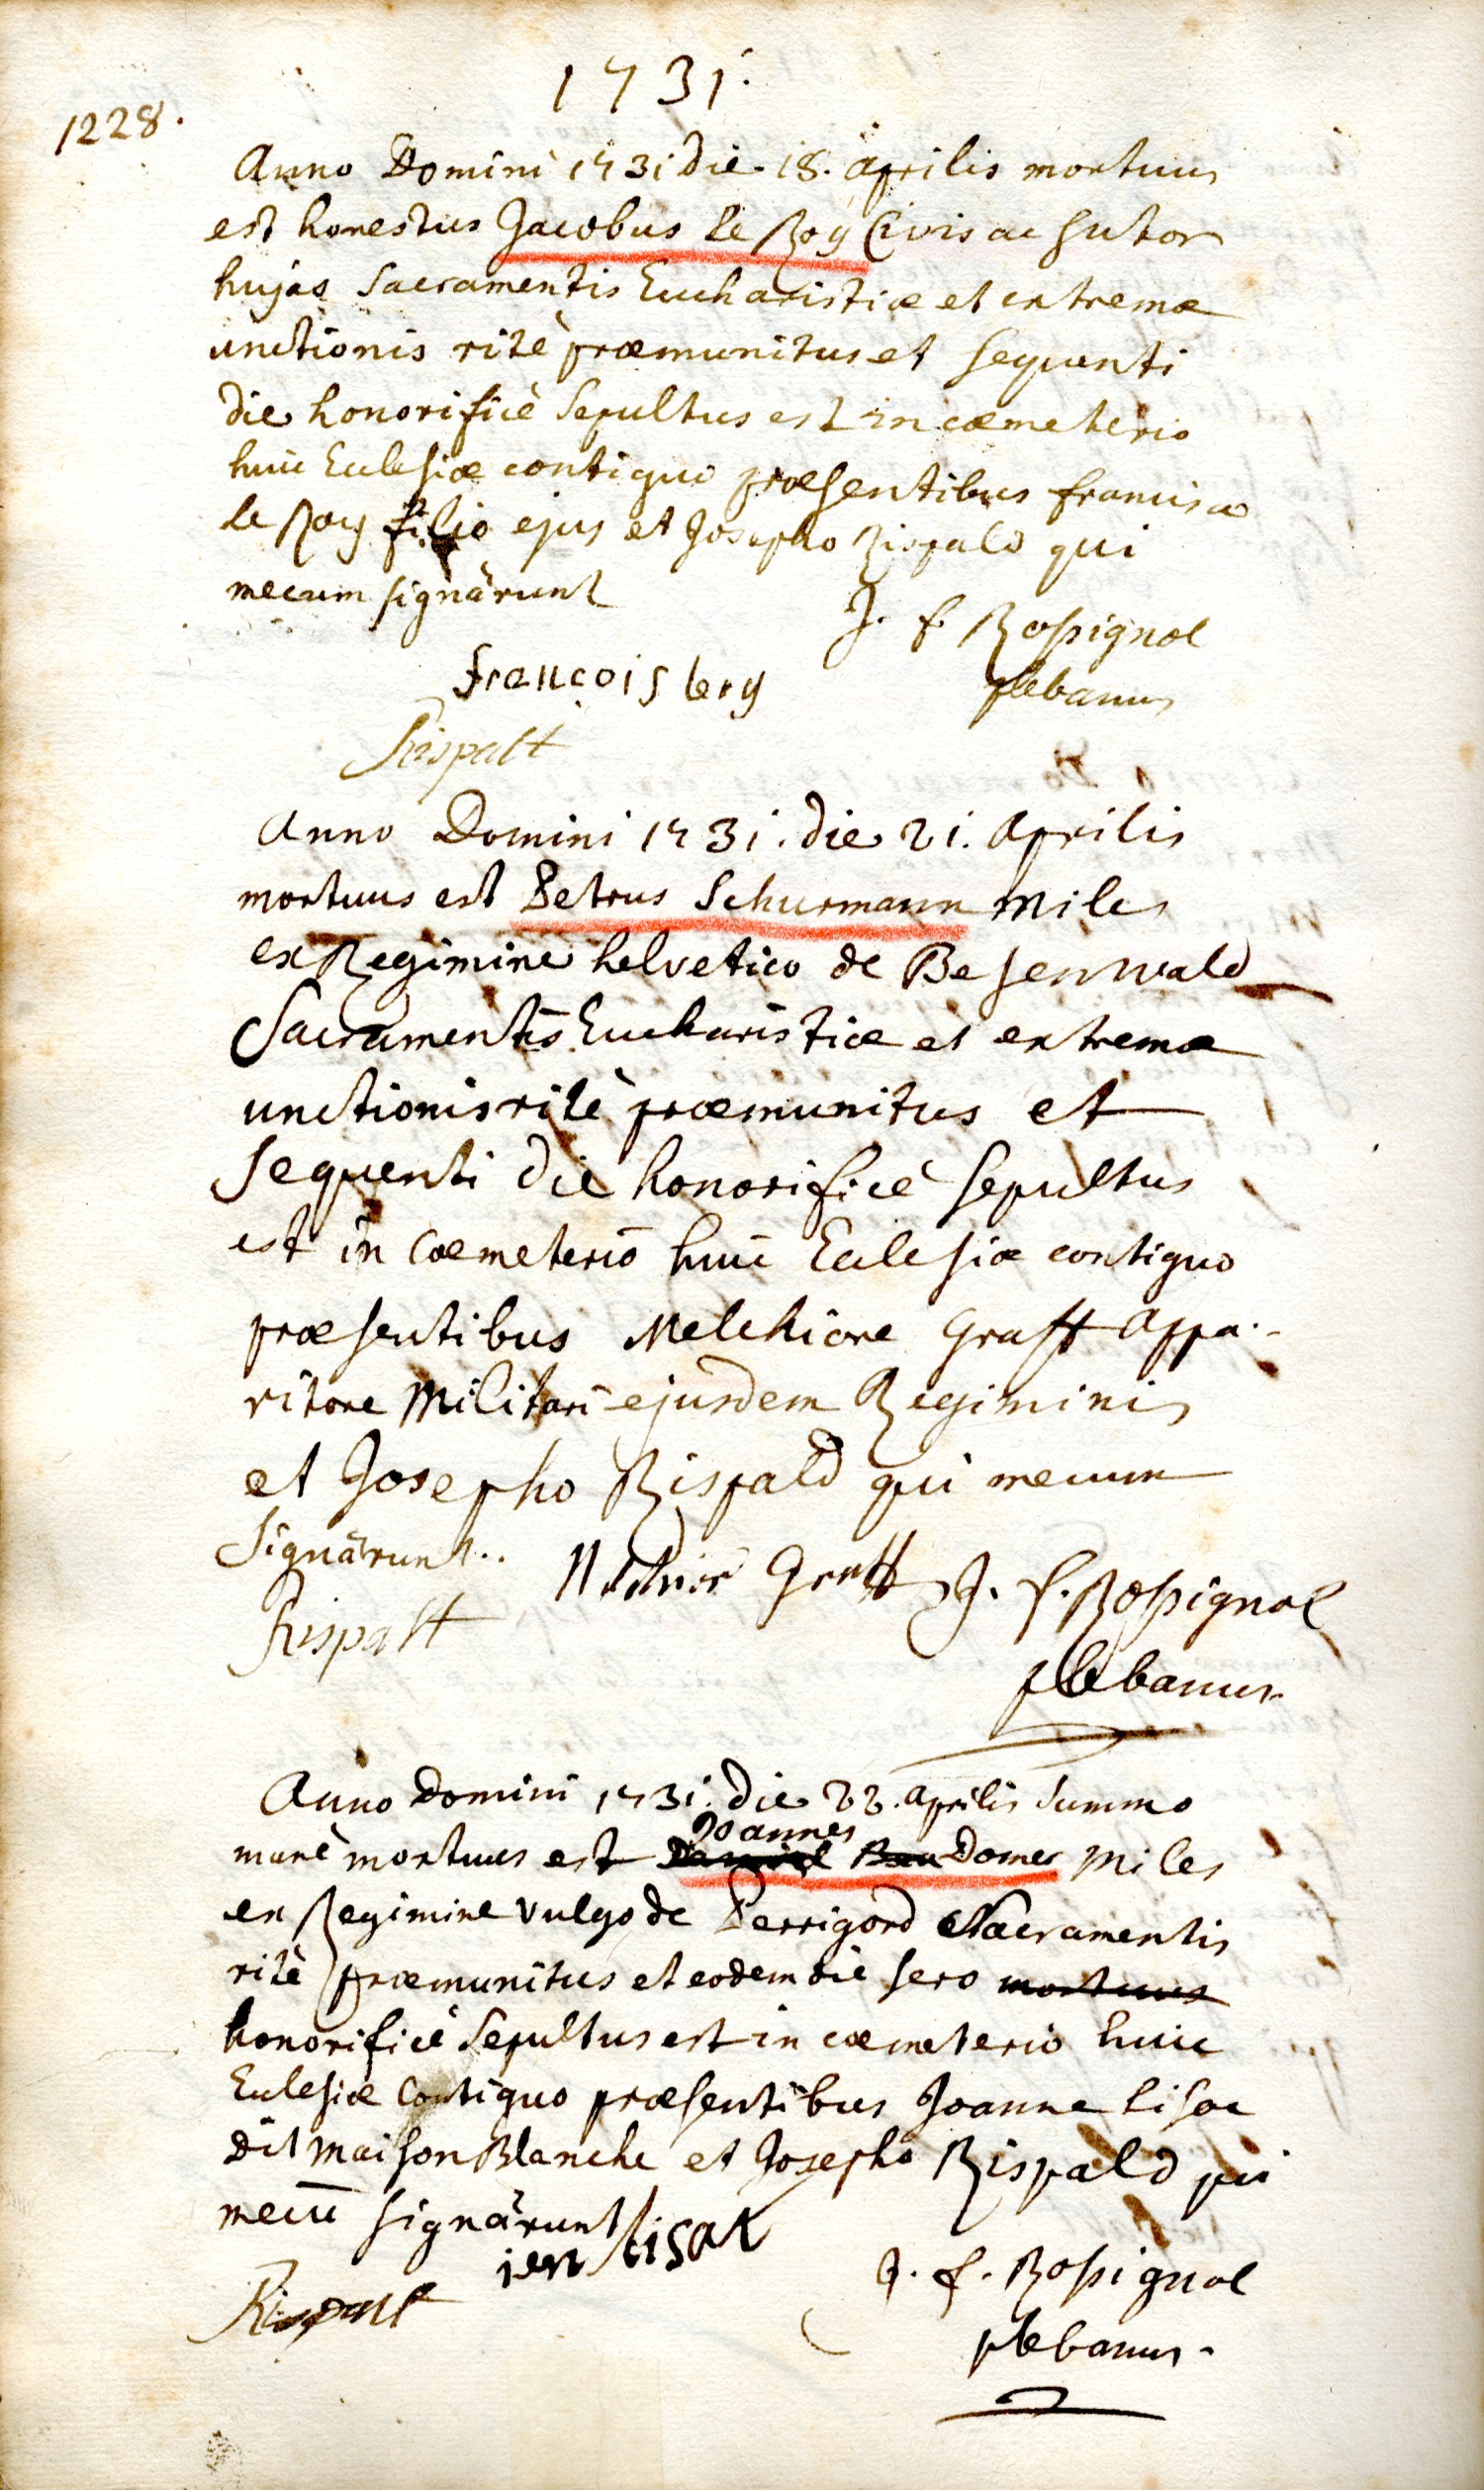 1731.
1228.
Anno Domini 1731 die 18. Aprilis mortuus
est honestus Jacobus le Roy Civis ac sutor
hujas Sacramentis Eucharistiæ et extremæ
unctionis ritè præmunitus et sequenti
die honorificè sepultus est in cœmeterio
huic Ecclesiæ contiguo præsentibus francisco
le Roy filio ejus et Josepho Rispald qui
mecum signârunt
J. f. Rossignol
françois lery
plebanus
Rispalt
Anno Domini 1731. die 21. Aprilis
mortuus est Petrus Schurmann Miles
ex Regimine helvetico de Besenwald
Sacramentis Eucharistiæ et extremæ
unctionis ritè præmunitus et
sequenti die honorificè sepultus
est in Cœmeterio huic Ecclesiæ contiguo
præsentibus Melchiore Graff Appa-
ritore Militari ejusdem Regiminis
et Josepho Rispald qui mecum
signârunt..
Graff J. f. Rossignol
Rispalt
plebanus
Anno Domini 1731. die 22. aprilis summo
Joannes
manè mortuus est Daniel Beau Domer Miles
ex Regimine vulgo de Perrigord Sacramentis
ritè præmunitus et eodem die sero mortuus
honorificè sepultus est in cœmeterio huic
Ecclesiæ Contiguo præsentibus Joanne lisac
dit maison Blanche et Josepho Rispald qui
mecū signârunt
jean lisak
J. f. Rossignol
Rispalt
plebanus.